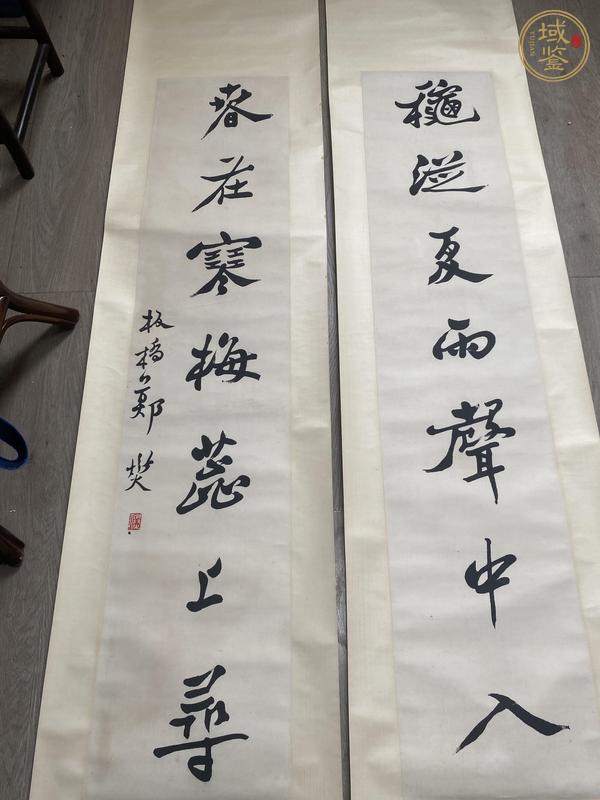 龝從夏雨聲中入
春在寒梅蕊上尋
板橋鄭燮
域鉴
YUJIAN